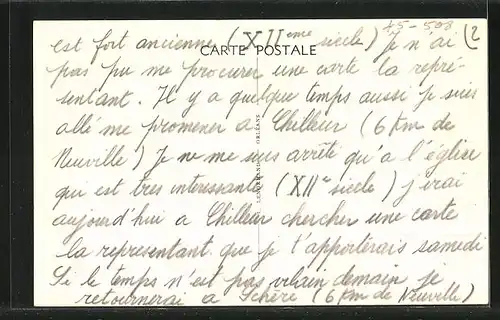 45-508
est fort ancienne (XIIeme siecle) Je n'ai (2
CARTE POSTALE
pas pu me procurer une carte la repré-
sentant. Il y a quelque temps aussi je suis
allé me promener a Chilleur (6 Km de
Neuville) Je ne me suis arrêté qu'a l'église
qui est tres interessante (XIIe siecle) j'irai
aujourd'hui a Chilleur chercher une carte
la representant que je t'apporterais samedi
Si le temps n'est pas vilain demain je
retournerai a (6 Km de Neuville)
ORLÉANS